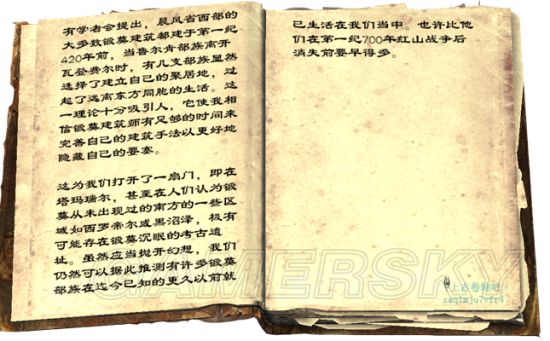 有学者会提出，晨风省西部的
大多数锻莫建筑都建于第一纪
420年前，当鲁尔肯部族离开
瓦登费尔时，有几支部族显然
选择了建立自己的聚居地，过
起了远离东方同胞的生活。这
一理论十分吸引人，它使我相
信锻莫建筑师有足够的时间来
完善自己的建筑手法以更好地
隐藏自己的要塞。
这为我们打开了一扇门，即在
塔玛瑞尔，甚至在人们认为锻
莫从未出现过的南方的一些区
域如西罗帝尔或黑沼泽，极有
可能存在锻莫沉眠的考古遗
址。虽然应当抛开幻想，我们
仍然可以据此推测有许多锻莫
部族在迄今已知的更久以前就
已生活在我们当中。也许比他
们在第一纪700年红山战争后
消失前要早得多。
GAMERSKY
上古卷轴吧
zaq1mju7vfr4